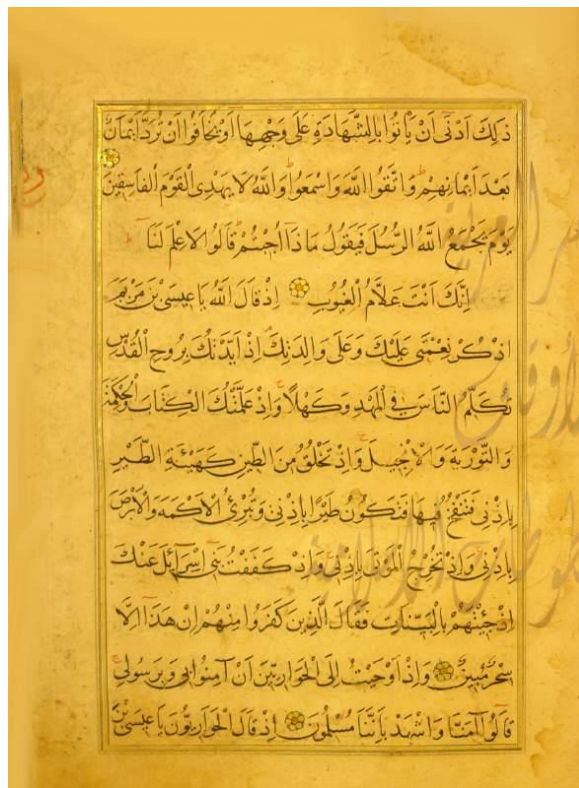 ذَلِكَ اَدْنَى اَنْ يَاْتُوا بِالشَّهَادَةِ عَلَى وَجْهِهَا اَوْ يَخَافُوا اَنْ تُرَدَّ اَيْمَانٌ
بَعْدَ اَيْمَانِهِمْ وَاتَّقُوا اللَّهَ وَاسْمَعُوا وَاللَّهُ لَا يَهْدِى الْقَوْمَ الْفَاسِقِينَ
يَوْمَ يَجْمَعُ اللَّهُ الرُّسُلَ فَيَقُولُ مَاذَا اُجِبْتُمْ قَالُوا لَا عِلْمَ لَنَا
اِنَّكَ اَنْتَ عَلَّامُ الْغُيُوبِ اِذْ قَالَ اللَّهُ يَا عِيسَى بْنَ مَرْيَمَ
اذْكُرْ نِعْمَتِى عَلَيْكَ وَعَلَى وَالِدَتِكَ اِذْ اَيَّدْتُكَ بِرُوحِ الْقُدُسِ
تُكَلِّمُ النَّاسَ فِى الْمَهْدِ وَكَهْلًا وَاِذْ عَلَّمْتُكَ الْكِتَابَ وَالْحِكْمَةَ
وَالتَّوْرَيةَ وَالْاِنْجِيلَ وَاِذْ تَخْلُقُ مِنَ الطِّينِ كَهَيْئَةِ الطَّيْرِ
بِاِذْنِى فَتَنْفُخُ فِيهَا فَتَكُونُ طَيْرًا بِاِذْنِى وَتُبْرِئُ الْاَكْمَهَ وَالْاَبْرَصَ
بِاِذْنِى وَاِذْ تُخْرِجُ الْمَوْتَى بِاِذْنِى وَاِذْ كَفَفْتُ بَنِى اِسْرَآئِلَ عَنْكَ
اِذْ جِئْتَهُمْ بِالْبَيِّنَاتِ فَقَالَ الَّذِينَ كَفَرُوا مِنْهُمْ اِنْ هَذَا اِلَّا
سِحْرٌ مُبِينٌ وَاِذْ اَوْحَيْتُ اِلَى الْحَوَارِيِّينَ اَنْ آمِنُوا بِى وَبِرَسُولِى
قَالُوا آمَنَّا وَاشْهَدْ بِاَنَّنَا مُسْلِمُونَ اِذْ قَالَ الْحَوَارِيُّونَ يَا عِيسَى بْنَ